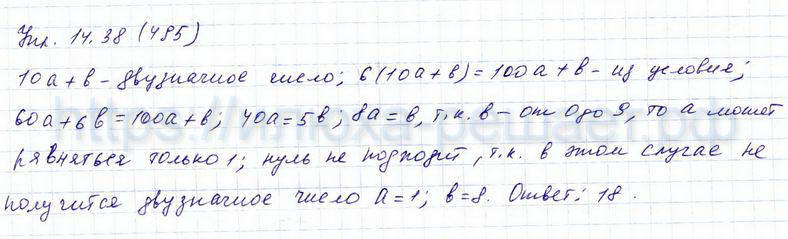 Упр. 14.38 (485)
10а + в - двузначное число; 6(10а+в) = 100а + в - из условия;
60а + 6в = 100а + в; 40а = 5в; 8а = в, т.к. в - от 0 до 9, то а может
рявняться только 1; нуль не подходит, т.к. в этом случае не
получится двузначное число а = 1; в = 8. Ответ: 18.
https://илюха-решает.рф